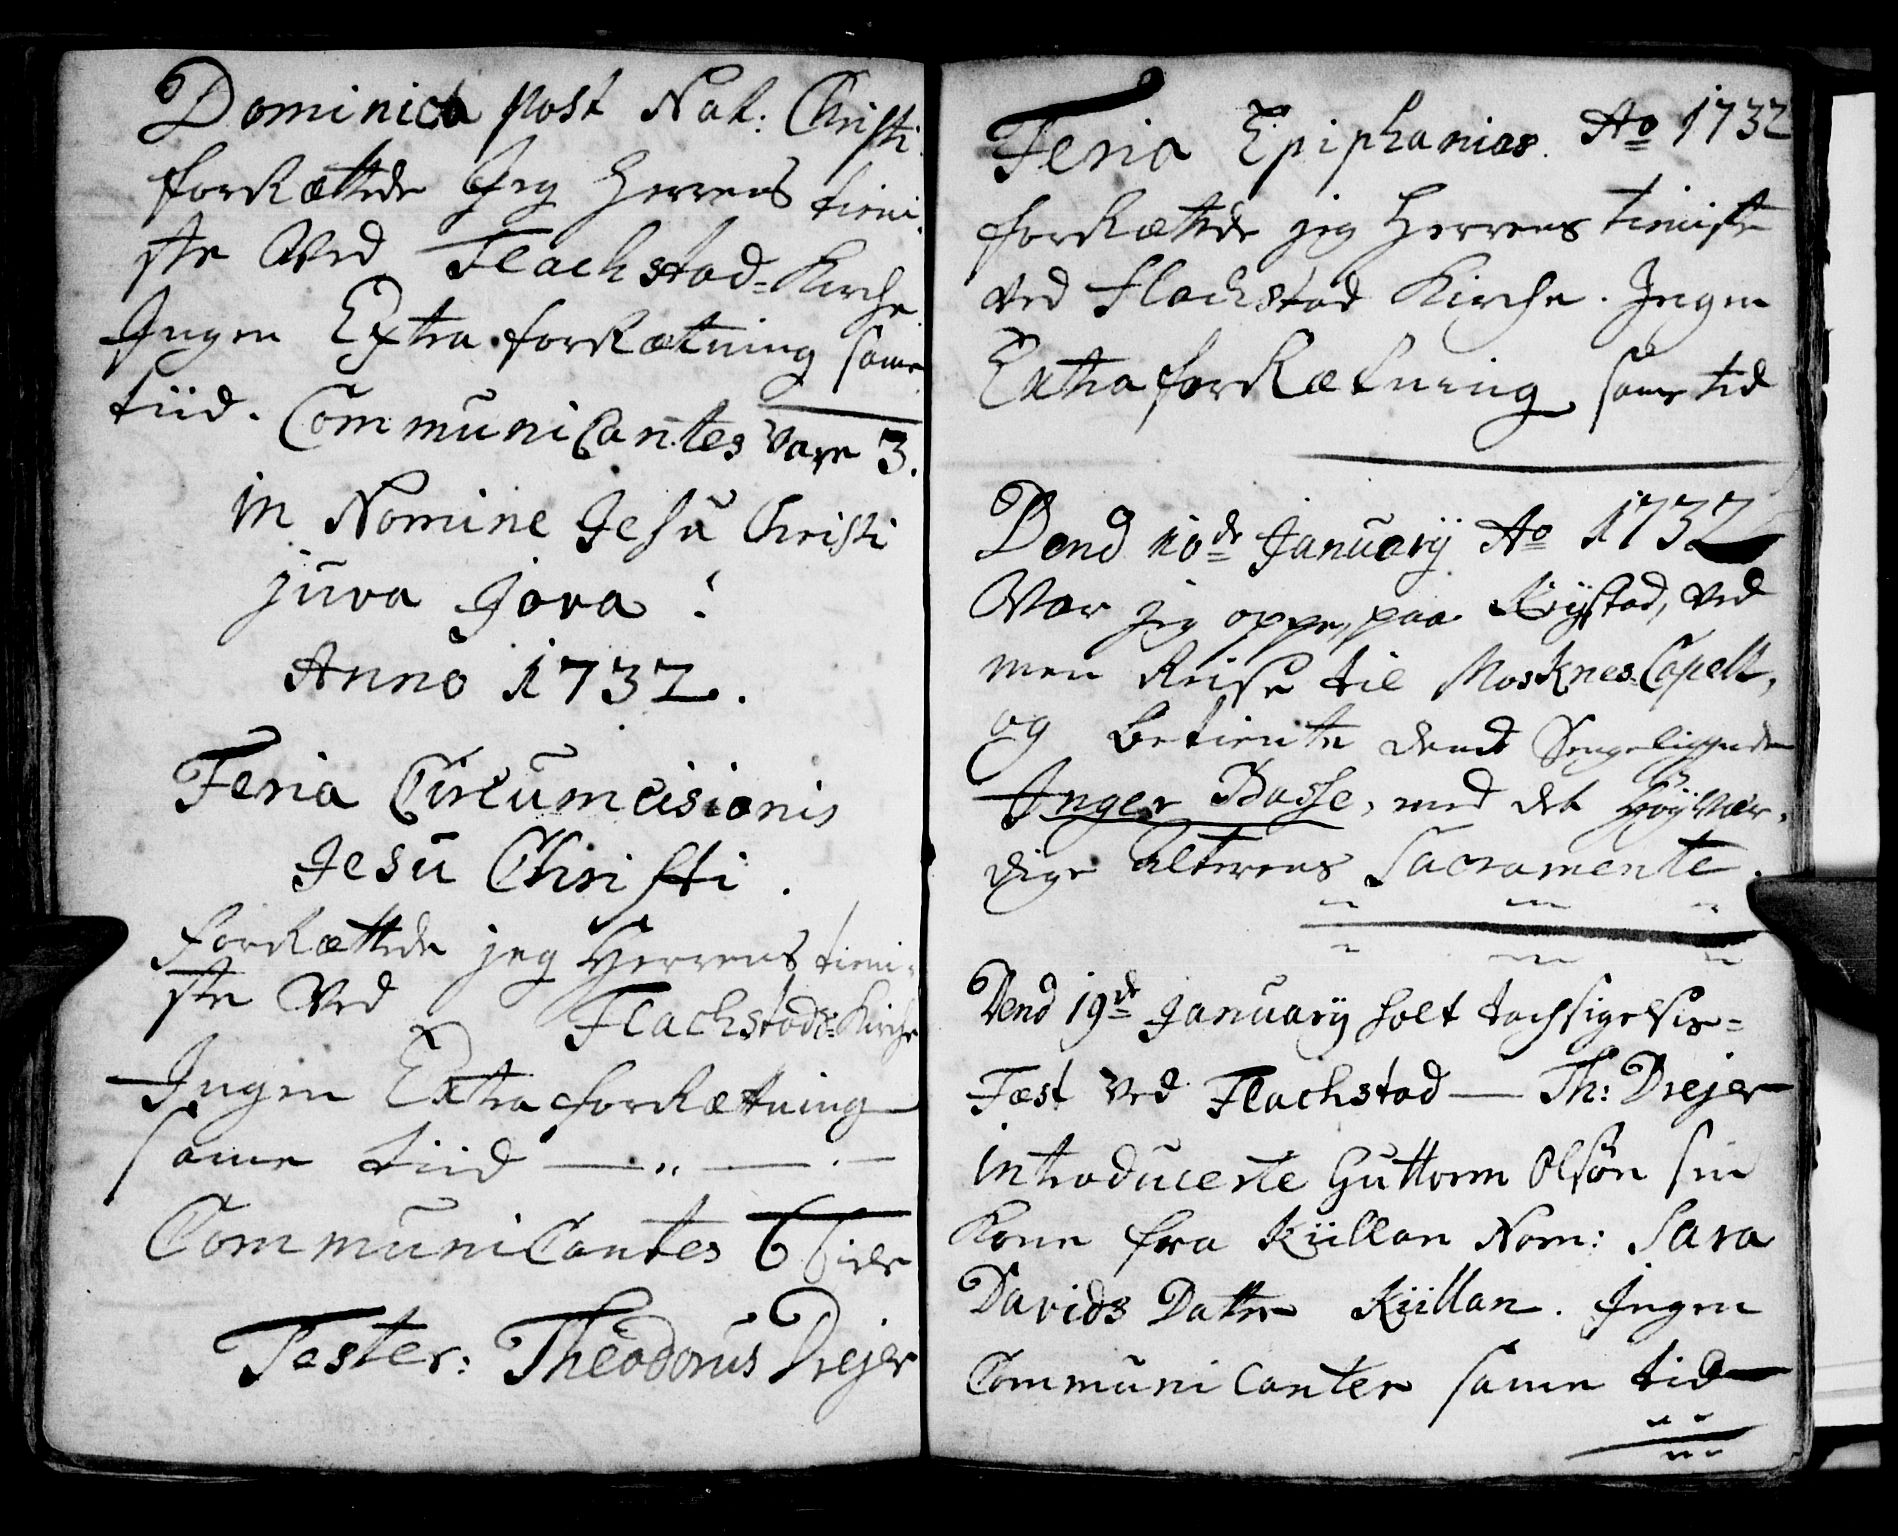 Dominica post Nat: Christi
forRættede Jeg Herrens tieni-
ste Ved Flachstad=Kirche
Ingen Extra forRætning same
tiid. CommuniCantes Vare 3.
in Nomine Jesu Christi
juva Jova!
Anno 1732.
Feria Circumcisionis
Jesu Christi.
forRættede jeg Herrens tieni-
ste Ved Flachstads=Kirche
Ingen Extra forRætning
same tiid
CommuniCantes 6
Tester: Theodorus Drejer
Feria Epiphanias. Ao 1732
forRættede jeg Herrens tieniste
ved Flachstad Kirche. Ingen
Extra forRætning same tid
Dend 10de January Ao 1732
War jeg oppe, paa Krystad, ved
men Reise til Mosknes=Capell,
og betiente dend Sengeliggende
Inger Basse, med det HöyVær-
dige alterens Sacramente.
Dend 19de January holt tachsigelsis=
Fæst ved Flachstad — Th: Drejer
introducerte Guttorm Olsön sin
Kone fra Küllan Nom: Sara
Davids Datter Küllan. Ingen
Communicanter same tid